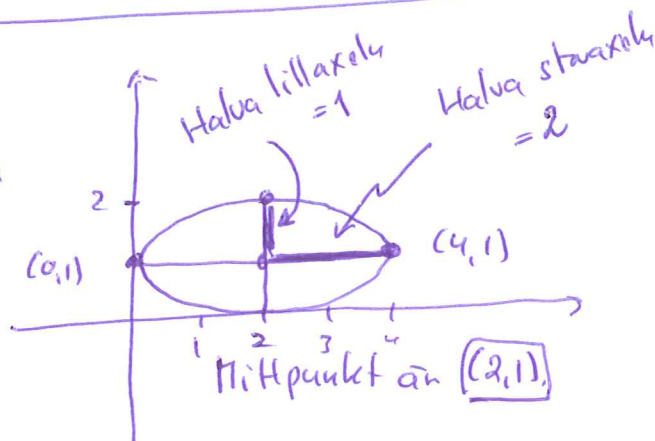 Halva lillaxeln
=1
Halva storaxeln
=2
2
(0,1)
(4,1)
1 2 3 4
Mittpunkt är (2,1).